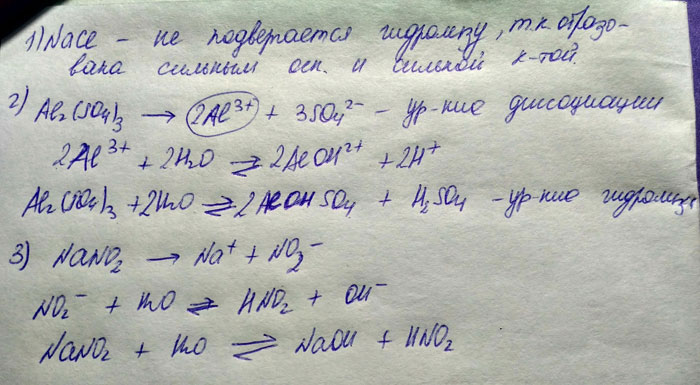 1) NaCl – не подвергается гидролизу, т.к образо-
вана сильным осн. и сильной к-той.
2) Al₂(SO₄)₃ → 2Al³⁺ + 3SO₄²⁻ – ур-ние диссоциации
2Al³⁺ + 2H₂O ⇌ 2AlOH²⁺ + 2H⁺
Al₂(SO₄)₃ + 2H₂O ⇌ 2AlOHSO₄ + H₂SO₄ – ур-ние гидролиза
3) NaNO₂ → Na⁺ + NO₂⁻
NO₂⁻ + H₂O ⇌ HNO₂ + OH⁻
NaNO₂ + H₂O ⇌ NaOH + HNO₂